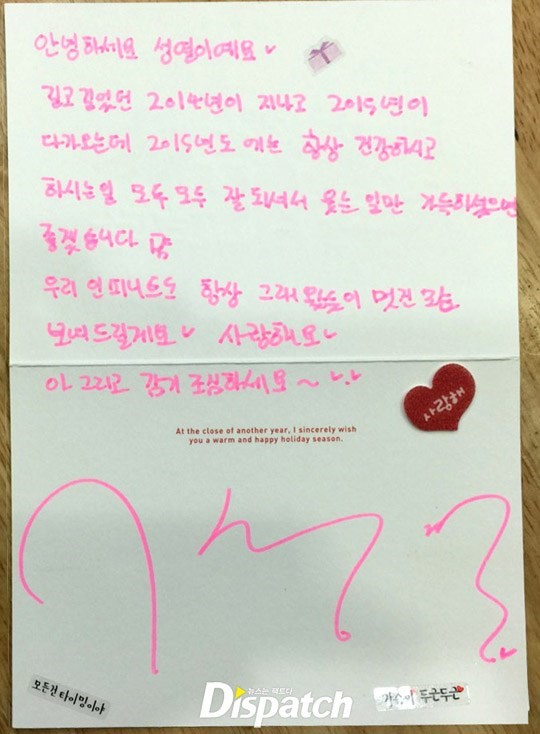 안녕하세요 성열이에요♥
길고 길었던 2014년이 지나고 2015년이
다가오는데 2015년도 에는 항상 건강하시고
하시는일 모두 모두 잘 되셔서 웃는 일만 가득하셨으면
좋겠습니다
우리 인피니트도 항상 그래왔듯이 멋진 모습
보여드릴게요♥ 사랑해요♥
아 그리고 감기 조심하세요~
사랑해
At the close of another year, I sincerely wish
you a warm and happy holiday season.
모든건 타이밍이야
두근두근
뉴스는 팩트다
Dispatch